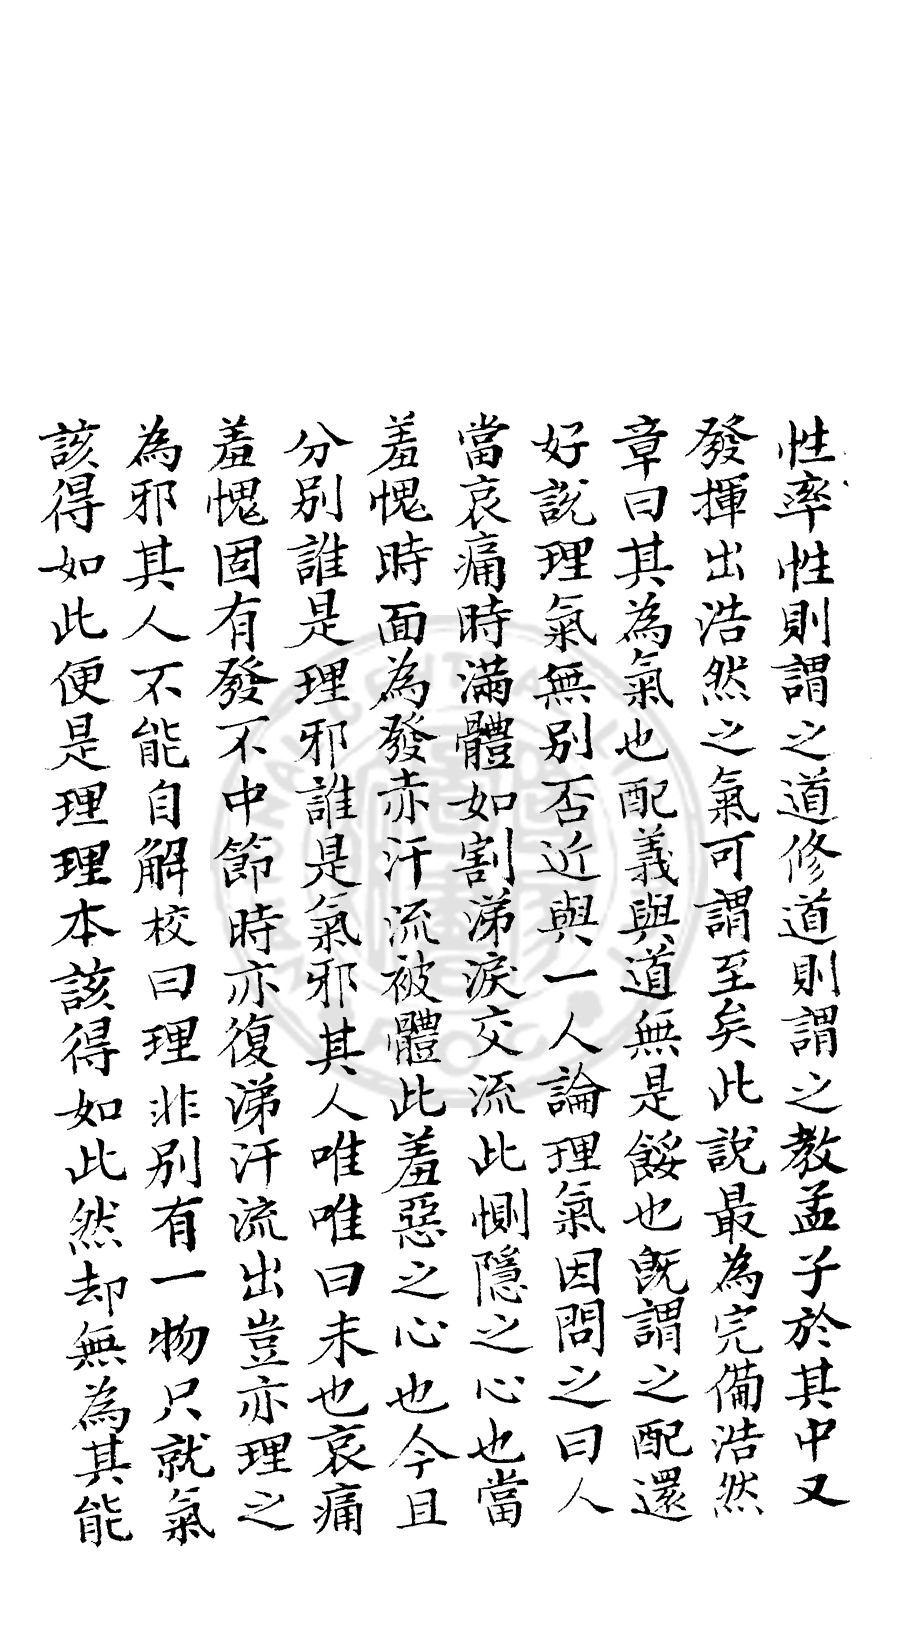 性率性則謂之道修道則謂之教孟子於其中又
發揮出浩然之氣可謂至矣此說最為完備浩然
章曰其為氣也配義與道無是餒也既謂之配還
好說理氣無別否近與一人論理氣因問之曰人
當哀痛時滿體如割涕淚交流此惻隱之心也當
羞愧時面為發赤汗流被體此羞惡之心也今且
分別誰是理邪誰是氣邪其人唯唯曰未也哀痛
羞愧固有發不中節時亦復涕汗流出豈亦理之
為邪其人不能自解校曰理非別有一物只就氣
該得如此便是理理本該得如此然却無為其能